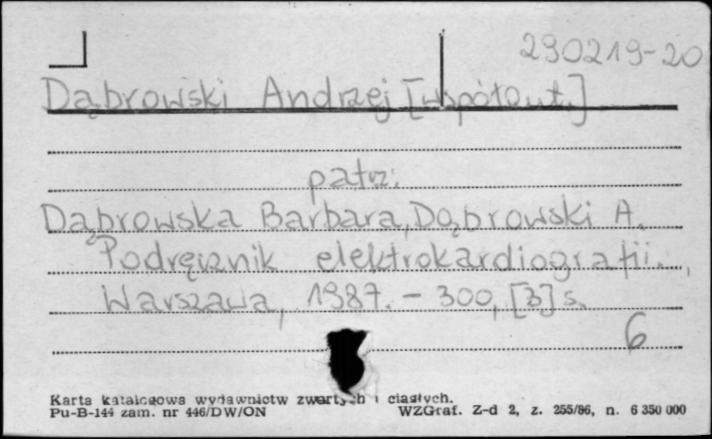 290219-20
Dąbrowski Andrzej [współaut.]
patrz:
Dąbrowska Barbara, Dąbrowski A.
Podręcznik elektrokardiografii.,
Warszawa, 1987. - 300, [3] s.
6
Karta katalogowa wydawnictw zwartych i ciągłych.
Pu-B-144 zam. nr 446/DW/ON WZGraf. Z-d 2, z. 255/86, n. 6 350 000